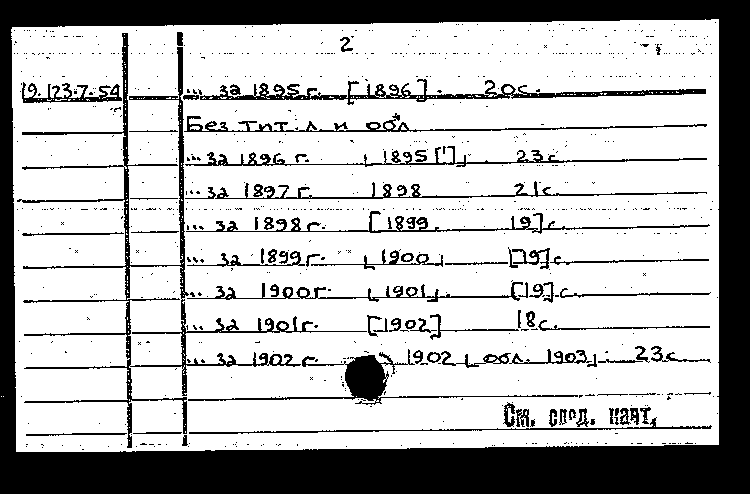 2
19.123.7.54 ... за 1895 г. [1896]. 20с.
Без тит. л. и обл.
... за 1896 г. [1895[!]] 23с.
... за 1897 г. 1898 21с.
... за 1898 г. [1899. 19] с.
... за 1899 г. [1900] [19] с.
... за 1900 г. [1901]. [19] с.
... за 1901 г. [1902] 18с.
... за 1902 г. 1902 [обл. 1903]. 23с.
См. след. карт.